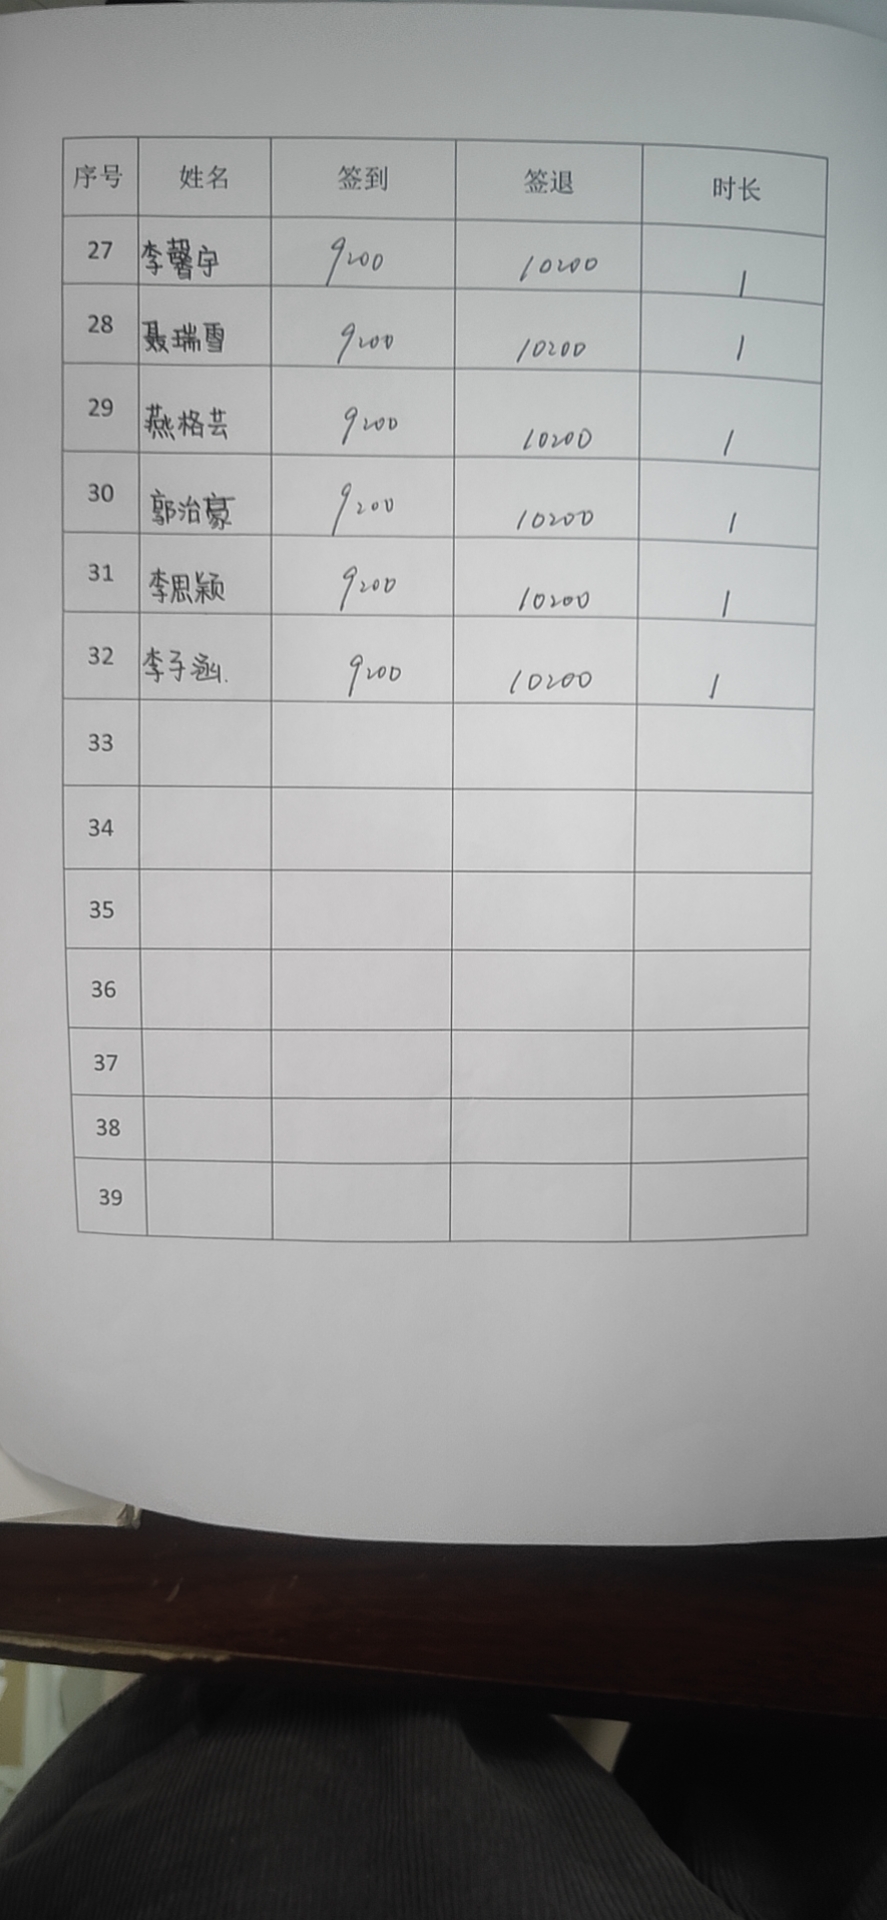 序号 姓名 签到 签退 时长
27 李馨宇 9:00 10:00 1
28 聂瑞雪 9:00 10:00 1
29 燕格芸 9:00 10:00 1
30 郭治豪 9:00 10:00 1
31 李思颖 9:00 10:00 1
32 李子涵. 9:00 10:00 1
33
34
35
36
37
38
39